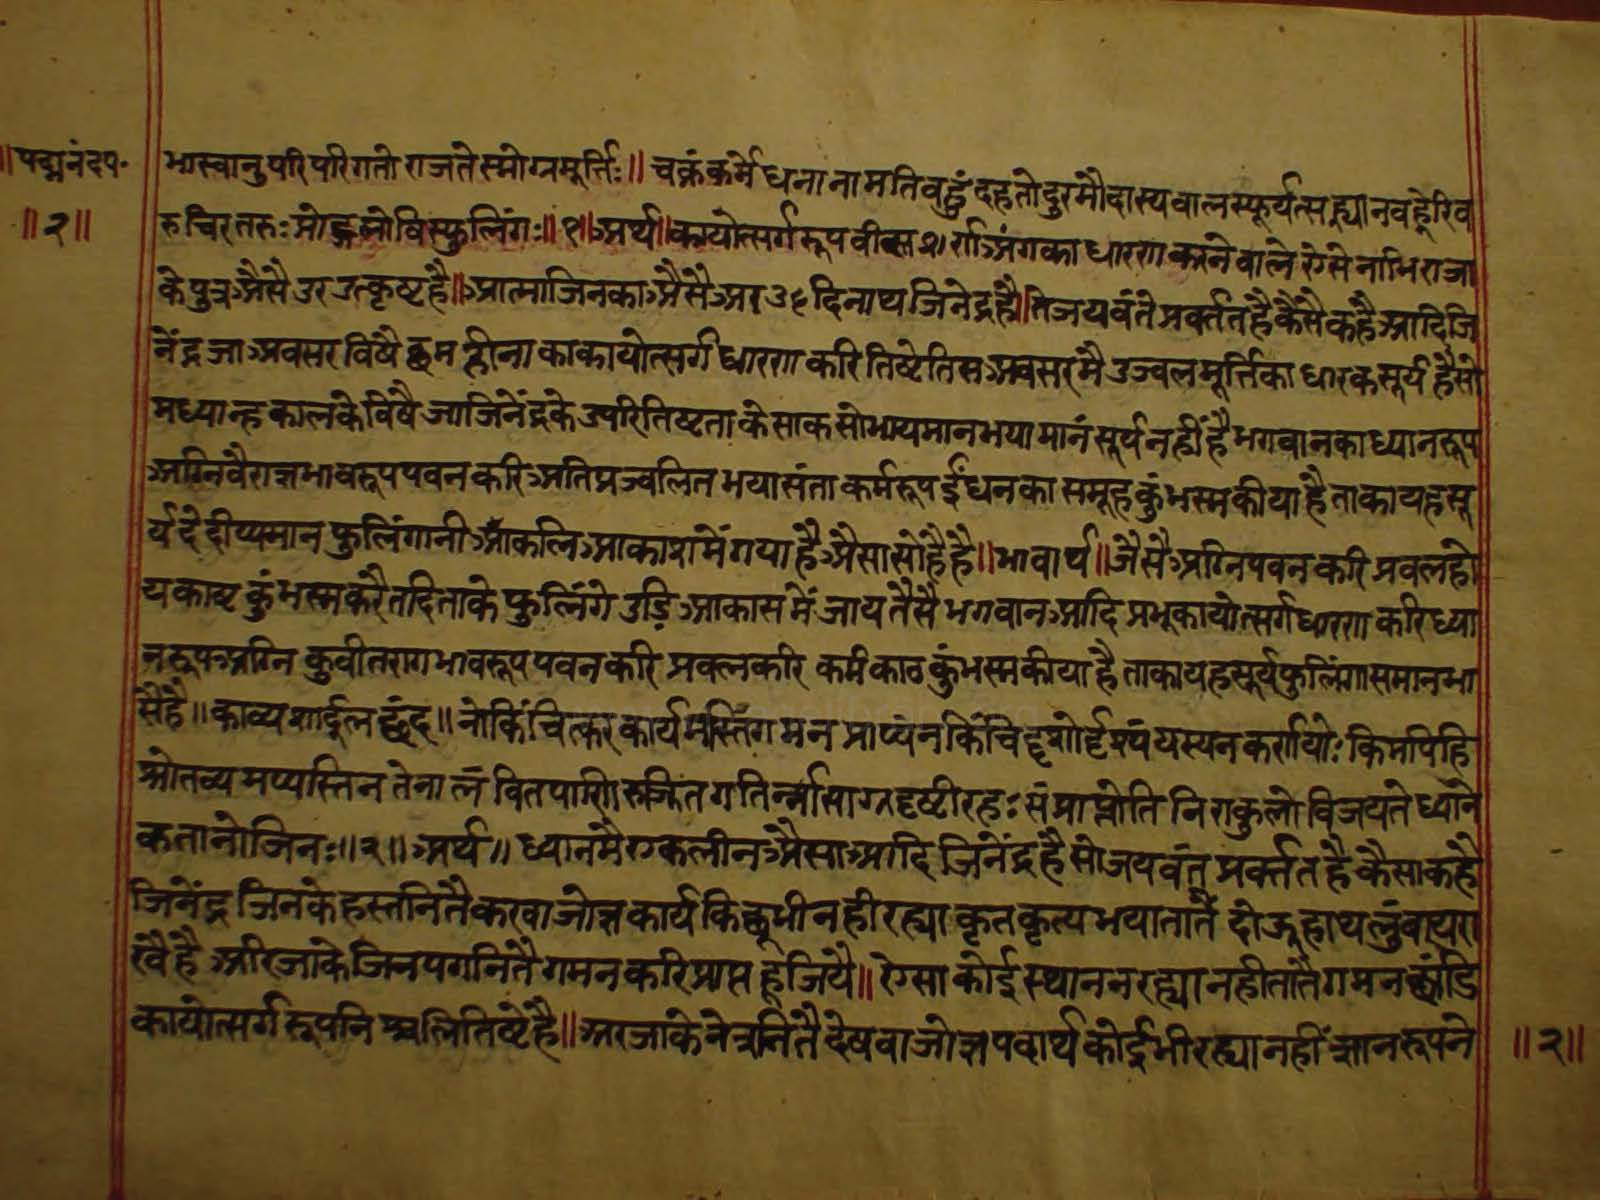 ॥पद्मनंदप॰ भास्वानुपरिपरिगतो राजतेस्मोग्रमूर्त्तिः॥ चक्रंकर्मेधनानामतिवहुंदहतोदुरमौदास्यवातस्फूर्यत्सद्ध्यानवह्नेरिव
॥२॥ रुचिरतरुःप्रोद्गतोविस्फुलिंगः॥१॥अर्थ॥कायोत्सर्गरूप अंगका धारण करनेवाले ऐसे नाभिराजा
केपुत्रअैसैउरउत्कृष्टहै॥आत्माजिनकाअैसै दिनाथजिनेद्रहै॥तेजयवंतेप्रवर्त्ततहैकैसैकहैआदिजि
नेंद्रजाअवसरविषैछमहीनाकाकायोत्सर्गधारणाकरितिष्टेतिसअवसरमैउज्वलमूर्त्तिकाधारकसूर्यहैसो
मध्यान्हकालकेविषैजाजिनेंद्रकेउपरितिष्टताकेसाकसोभायमानभयामानंसूर्यनहींहैभगवानकाध्यानरूप
अग्निवैराज्ञभावरूपपवनकरिअतिप्रज्वलितभयासंताकर्मरूपईंधनकासमूहकुंभस्मकीयाहैताकायहसू
र्यदेदीप्यमानफुलिंगानीआकलिआकाशमेंगयाहैअैसासोहैहै॥भावार्थ॥जैसैअग्निपवनकरिप्रवलहो
यकाष्टकुंभस्मकरैतदिताकेफुलिंगेउड़िआकासमेंजायतैसैभगवानआदिप्रभूकायोत्सर्गधारणाकरिध्या
नरूपअग्निकुवीतरागभावरूपपवनकरिप्रवलकरिकर्मकाठकुंभस्मकीयाहैताकायहसूर्यफुलिंगासमानभा
सैहै॥काव्यशार्दुलछंद॥नोकिंचित्करकार्यमस्तिगमनप्राप्यंनकिंचिदृशोर्दृश्यंयस्यनकर्णयोःकिमपिहि
श्रोतव्यमप्यस्तिनतेनालंवितपाणिरुज्झितगतिर्न्नासाग्रदृष्टीरहःसंप्राप्तोतिनिराकुलोविजयतेध्याने
कतानोजिनः॥२॥अर्थ॥ध्यानमैएकलीनअैसाआदिजिनेंद्रहैसोजयवंतप्रवर्त्ततहैकैसाकहै
जिनेंद्रजिनकेहस्तनितैकरवाजोज्ञकार्यकिछूभीनहीरह्याकृतकृत्यभयातातैंदोऊहाथलुंवायरा
खैहैअरिजाकेजिनपगनितैगमनकरिप्राप्तहूजियै॥ऐसाकोईस्थाननरह्यानहीतातैगमनछांडि
कायोत्सर्गरूपनिश्चलितिष्टेहै॥अरजाकेनेत्रनितैदेषवाजोज्ञपदार्थकोईभीरह्यानहींज्ञानरूपने ॥२॥